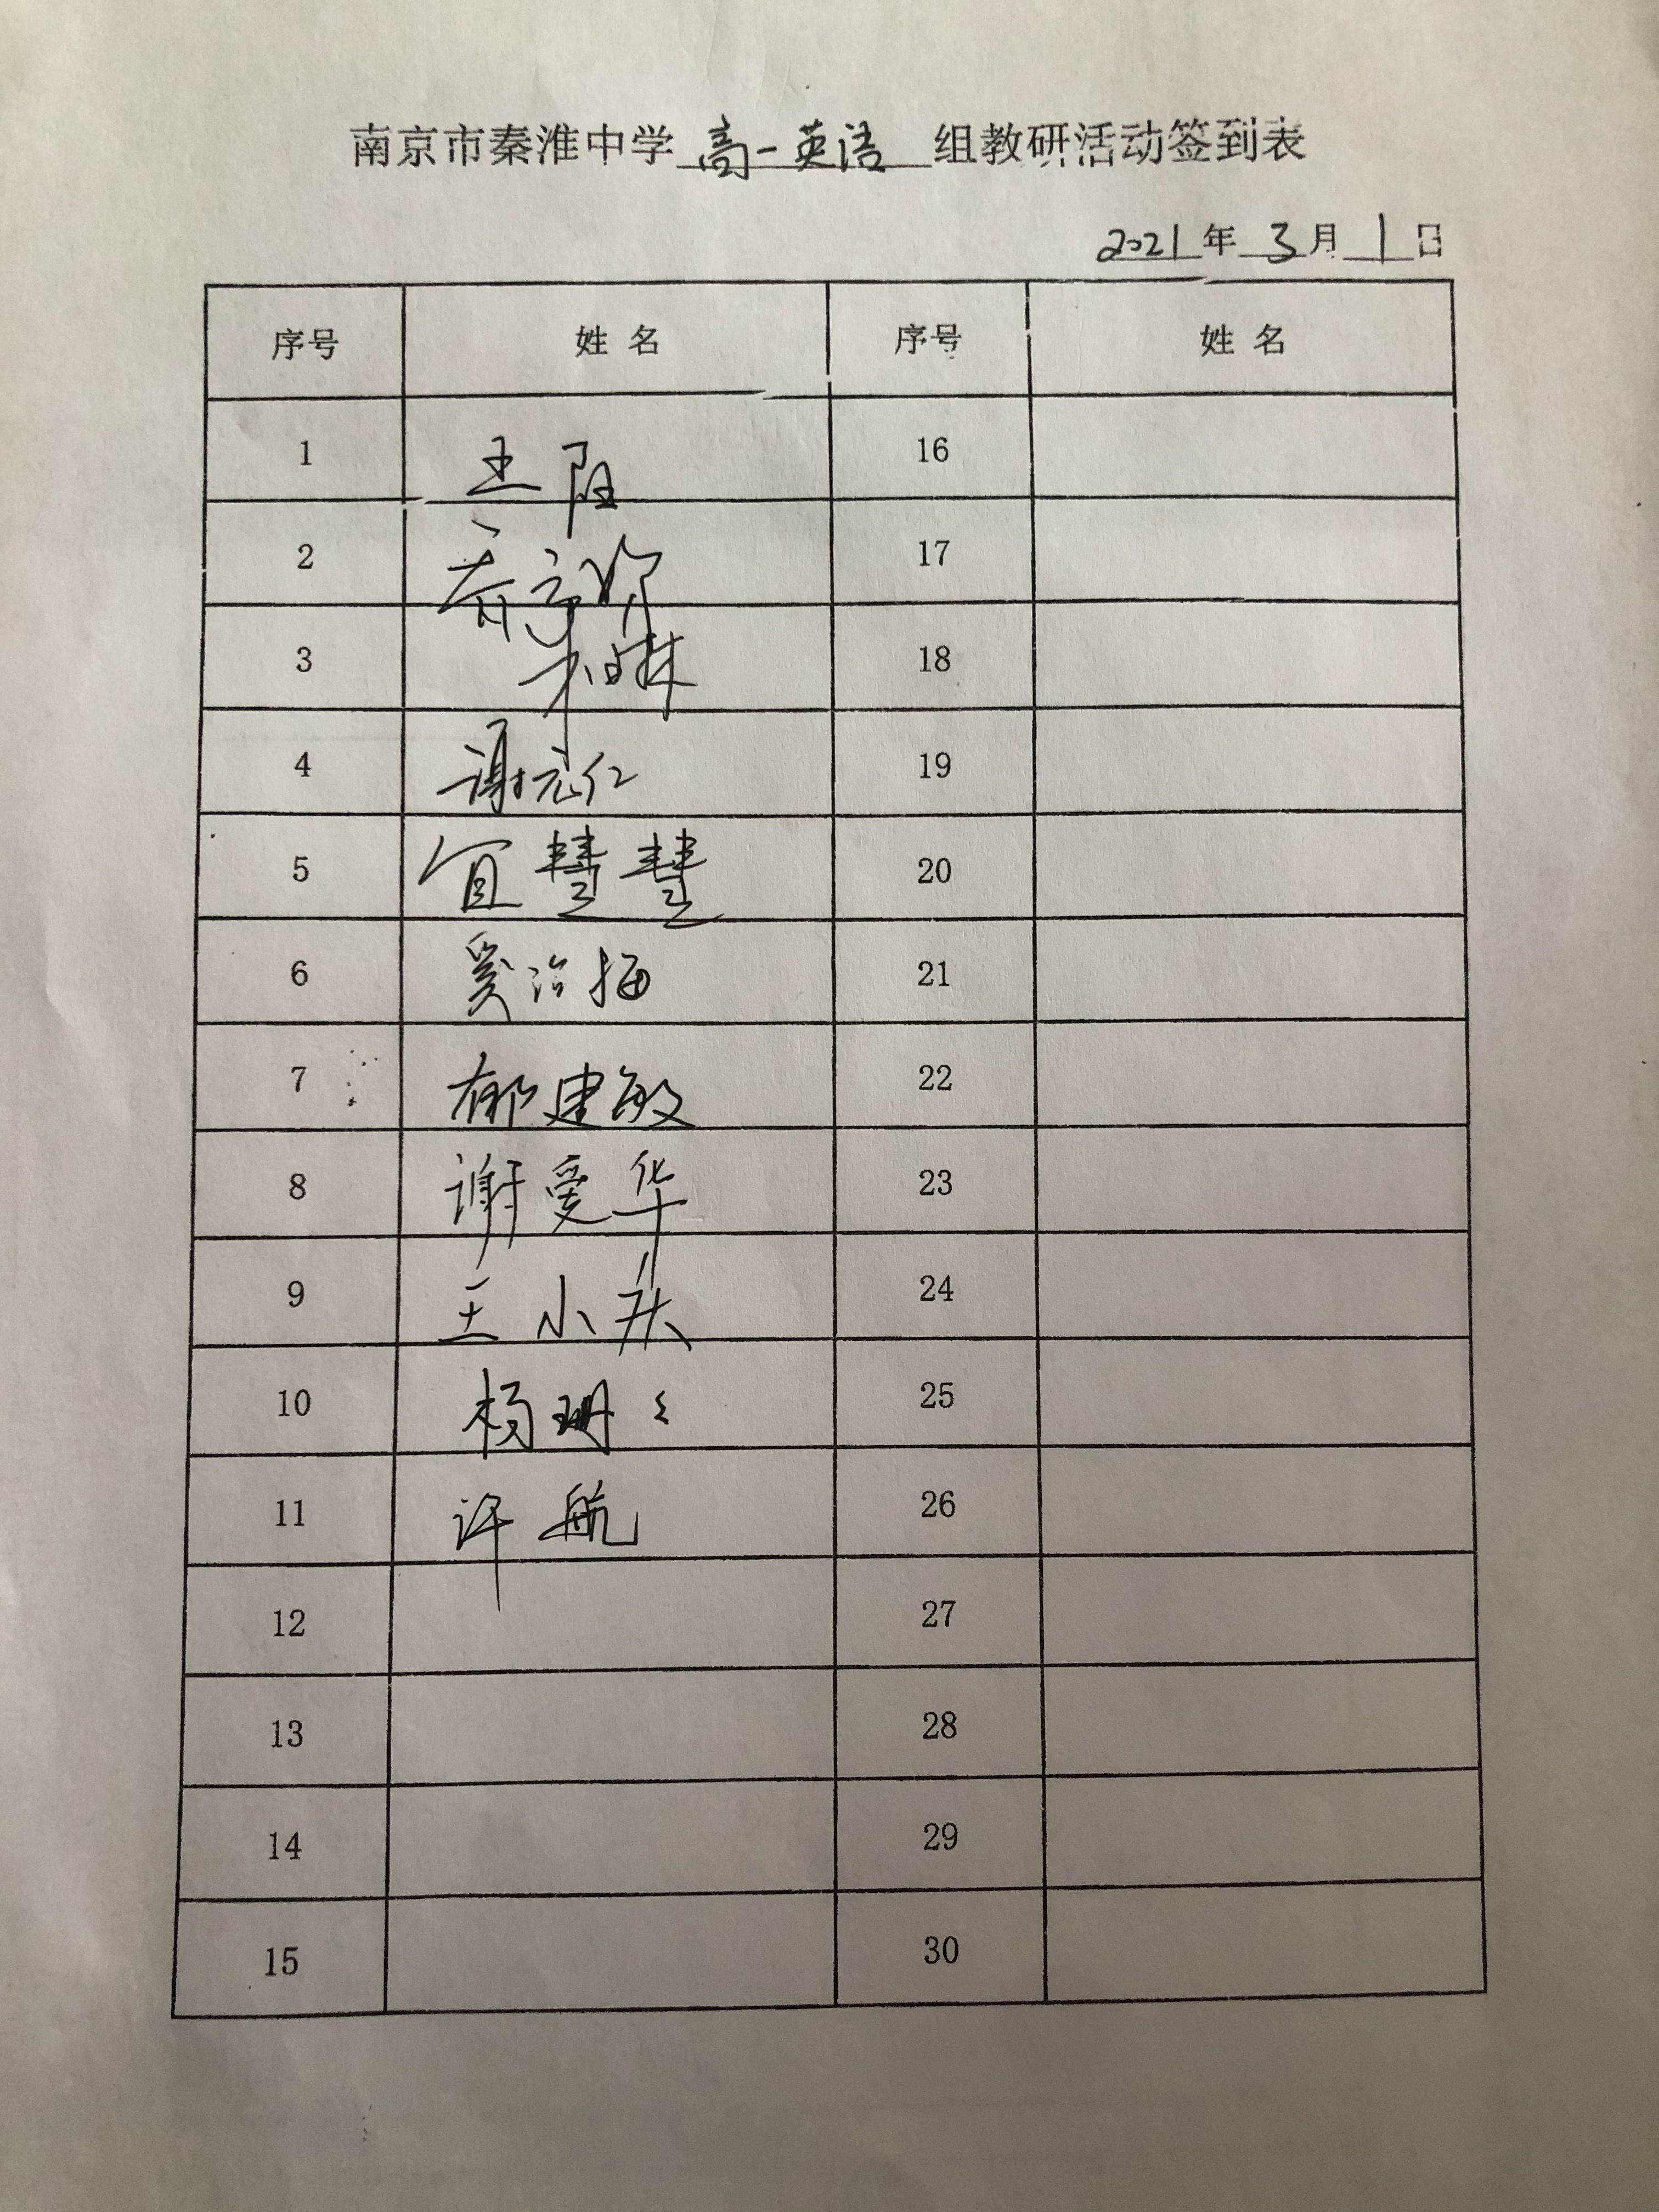 南京市秦淮中学 高一英语 组教研活动签到表
2021年3月1日
序号 姓名 序号 姓名
1 王阳 16
2 17
3 18
4 谢元仁 19
5 宜慧慧 20
6 奚治梅 21
7 郁建敏 22
8 谢爱华 23
9 王小庆 24
10 杨珊〻 25
11 许航 26
12 27
13 28
14 29
15 30